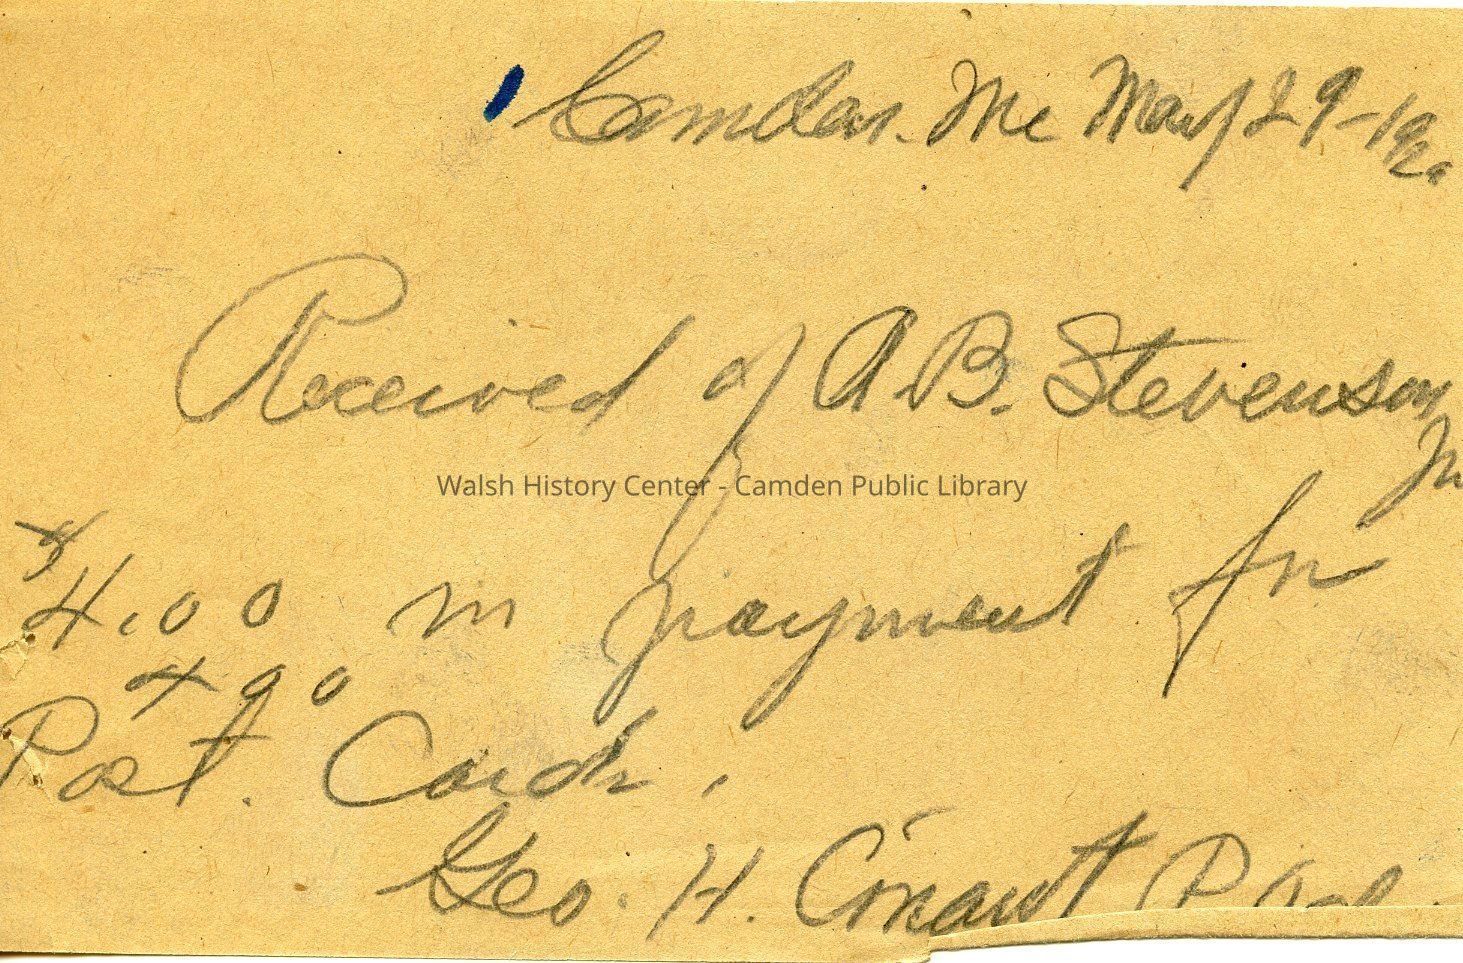 Camden. Me May 29-1920
Received of A.B. Stevenson
Jr
$
4.00 in payment for
400
Post. Cards.
Geo. H. Conant P
Walsh History Center - Camden Public Library